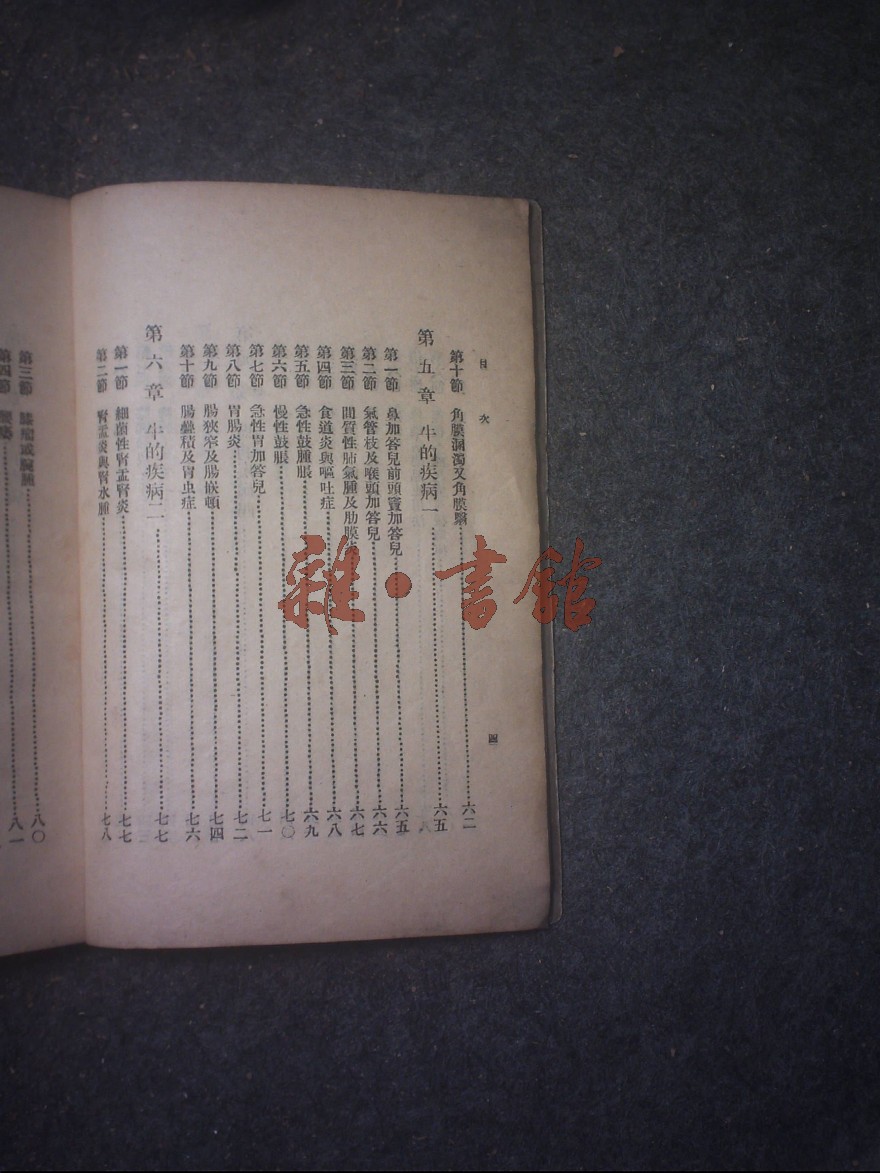 目次
四
第十節 角膜溷濁又角膜翳 六二
第五章 牛的疾病一 六五
第一節 鼻加答兒前頭竇加答兒 六五
第二節 氣管枝及喉頭加答兒 六六
第三節 間質性肺氣腫及肋膜炎 六七
第四節 食道炎與嘔吐症 六八
第五節 急性鼓腫脹 六九
第六節 慢性鼓脹 七〇
第七節 急性胃加答兒 七一
第八節 胃腸炎 七二
第九節 腸狹窄及腸嵌頓 七四
第十節 腸疊積及胃虫症 七六
第六章 牛的疾病二 七七
第一節 細菌性腎盂腎炎 七七
第二節 腎盂炎與腎水腫 七八
第三節 八〇
第四節 八一
雜·書館